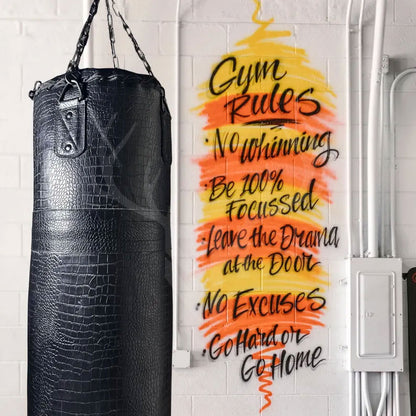 Gym
Rules
• No whinning
• Be 100%
Focussed
• Leave the Drama
at the Door
• No Excuses
• Go Hard or
Go Home